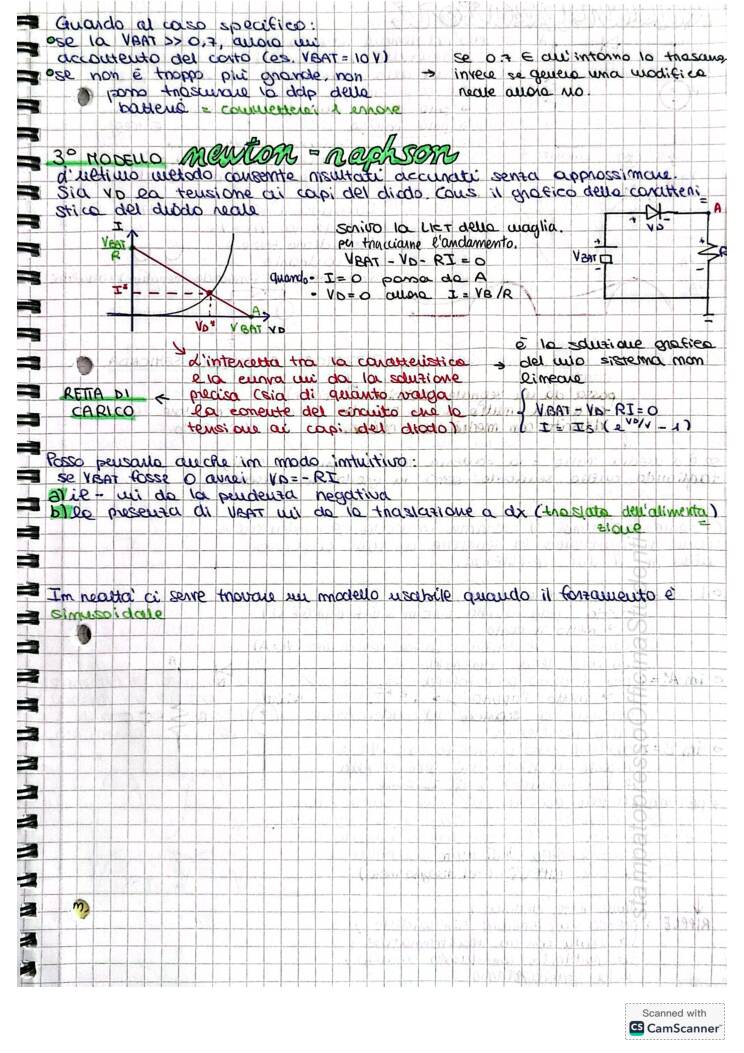 Guardo al caso specifico:
•se la VBAT >> 0,7, allora mi
accontento del corto (es. VBAT = 10V)
•se non è troppo più grande, non
posso trascurare la ddp della
batteria = commetterei 1 errore
→ se 0.7 E all'intorno lo trascuro
invece se genera una modifica
reale allora no.
3° MODELLO newton - raphson
L'ultimo metodo consente risultati accurati senza approssimare.
Sia VD la tensione ai capi del diodo. Cous il grafico della caratteri
stica del diodo reale
I
VBAT
R
I*
VD*
A
VBAT
VD
Scrivo la LKT della maglia.
per tracciarne l'andamento.
VBAT - VD - RI = 0
quando • I=0 passa da A
• VD=0 allora I = VB/R
A
VD
VBAT
R
L'intercetta tra la caratteristica
e la curva mi da la soluzione
precisa (sia di quanto valga
la corrente del circuito che la
tensione ai capi del diodo)
← RETTA DI
CARICO
→ è la soluzione grafica
del mio sistema non
lineare
VBAT - VD - RI = 0
I = IS (e^VD/V - 1)
Posso pensarla anche im modo imtuitivo:
se VBAT fosse 0 avrei VD = - RI
a) il - mi da la pendenza negativa
b) la presenza di VBAT mi da la traslazione a dx (traslata dell'alimenta)
zione
Im realta' ci serve trovare un modello usabile quando il forzamento è
sinusoidale
stampatopressoOfficinaStudenti
Scanned with
CS CamScanner